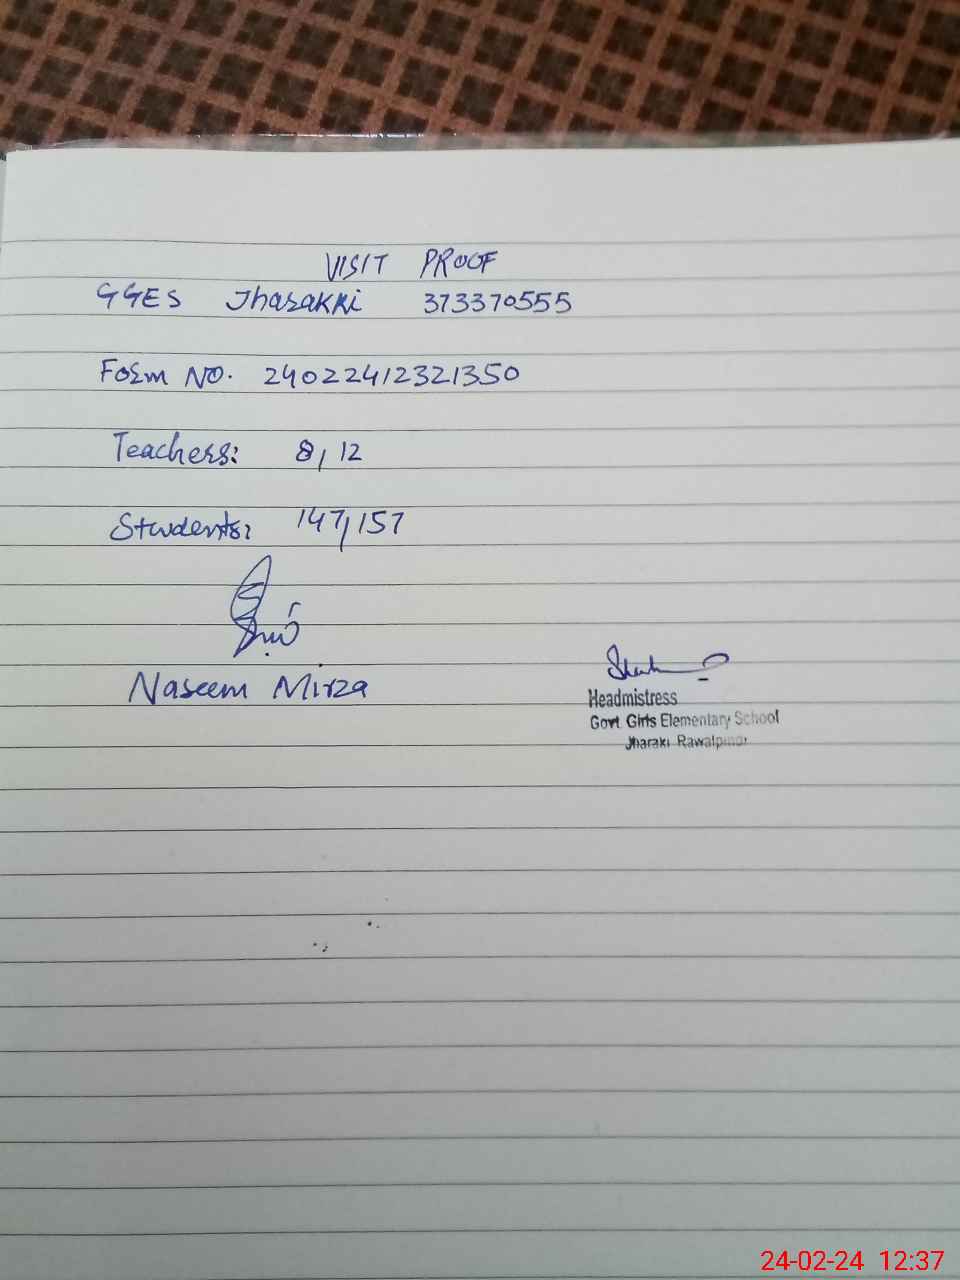 VISIT PROOF
GGES Jharakri 373370555
Form NO. 24022412321350
Teachers: 8, 12
Students: 147/157
Naseem Mirza
Headmistress
Govt Girls Elementary School
Jharaki Rawalpindi
24-02-24 12:37